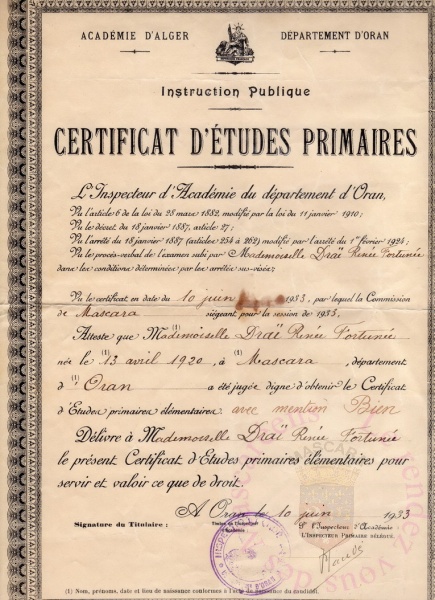 ACADÉMIE D'ALGER
DÉPARTEMENT D'ORAN
Instruction Publique
CERTIFICAT D'ÉTUDES PRIMAIRES
L'Inspecteur d'Académie du département d'Oran,
Vu l'article 6 de la loi du 28 mars 1882, modifié par la loi du 11 janvier 1910;
Vu le décret du 18 janvier 1887, article 27;
Vu l'arrêté du 18 janvier 1887 (articles 254 à 262) modifié par l'arrêté du 1er février 1924;
Vu le procès-verbal de l'examen subi par Mademoiselle Draï Renée Fortunée
dans les conditions déterminées par les arrêtés susvisés;
Vu le certificat en date du 10 juin 1933, par lequel la Commission
de Mascara siégeant pour la session de 1933,
Atteste que (1) Mademoiselle Draï Renée Fortunée
née le (1) 13 avril 1920, à (1) Mascara, département
d (1) Oran a été jugée digne d'obtenir le Certificat
d'Etudes primaires élémentaires avec mention Bien
Délivré à Mademoiselle Draï Renée Fortunée
le présent Certificat d'Etudes primaires élémentaires pour
servir et valoir ce que de droit.
A Oran le 10 juin 1933
Signature du Titulaire :
P. l'Inspecteur d'Académie
L'INSPECTEUR PRIMAIRE DÉLÉGUÉ
MASCARA
(1) Nom, prénoms, date et lieu de naissance conformes à l'acte de naissance du candidat.